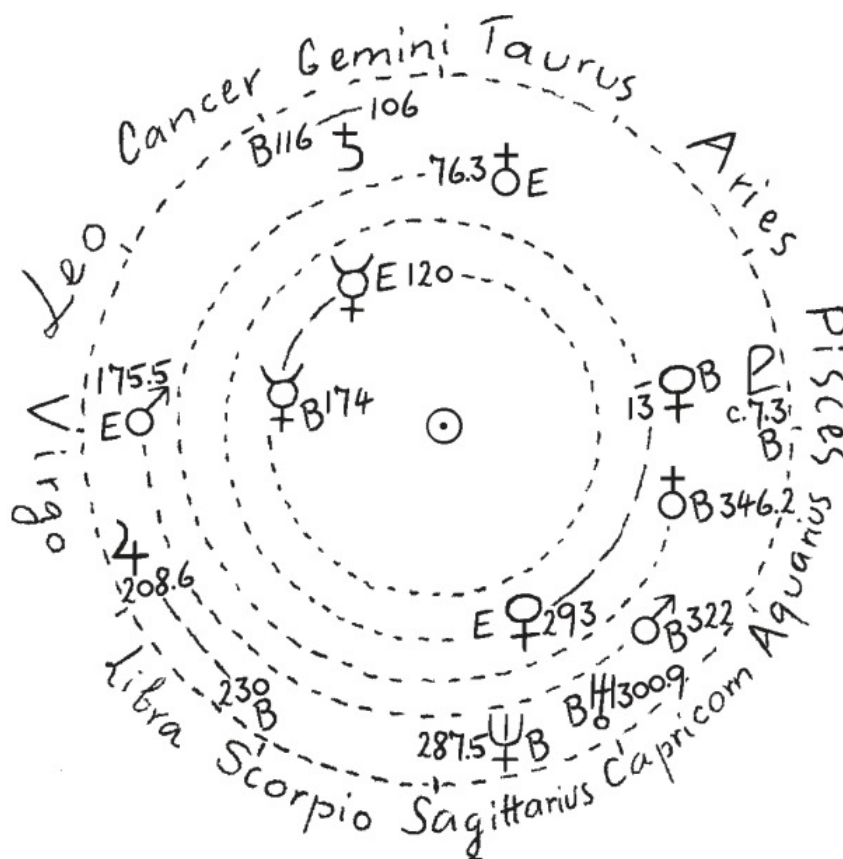 Cancer Gemini Taurus
Aries
Pisces
Aquarius
Capricorn
Sagittarius
Scorpio
Libra
Virgo
Leo
106
B116
♄
76.3 ♁ E
☿ E 120
175.5
E ♂
☿ B 174
☉
13 ♀ B
♇
c.7.3
B
♁ B 346.2
♃
208.6
230
B
E ♀ 293
♂ B 322
B ♅ 300.9
287.5 ♆ B